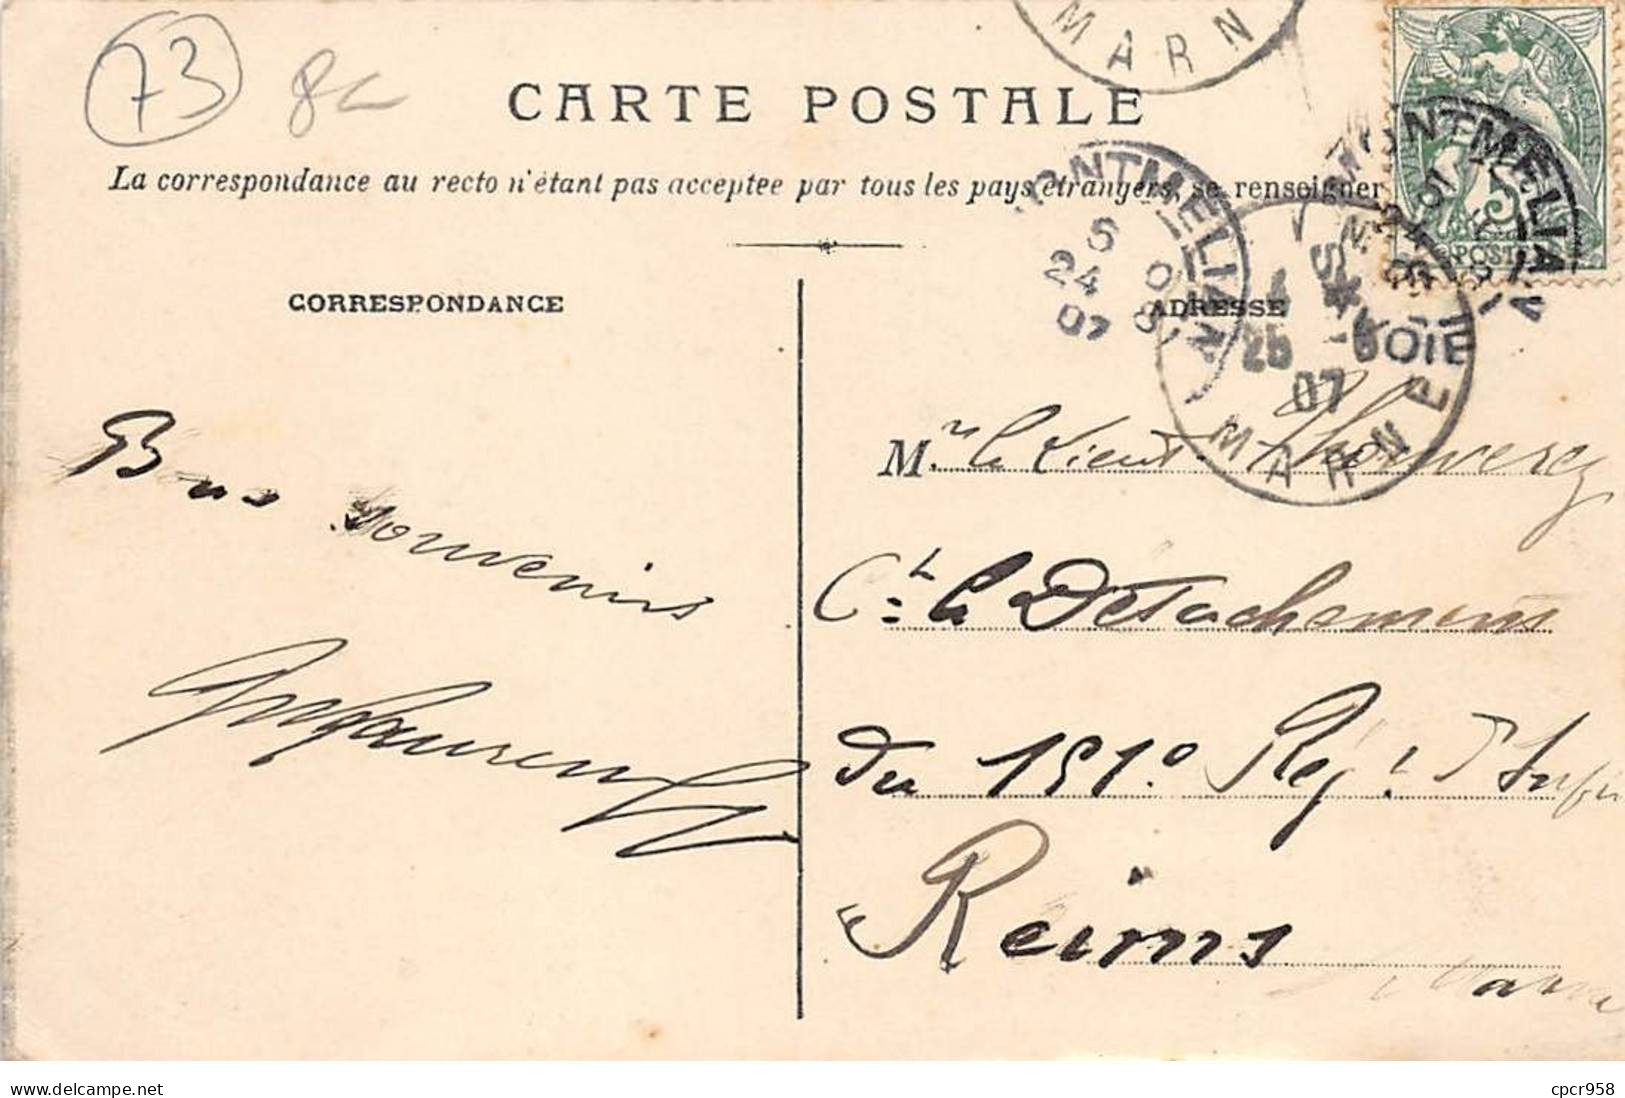 73 8c
MARN
CARTE POSTALE
La correspondance au recto n'étant pas acceptée par tous les pays étrangers, se renseigner
MONTMELIAN
6
24 8
07
MONTMELIAN
SAVOIE
POST
5
25
07
MARNE
CORRESPONDANCE
ADRESSE
Bons souvenirs
Mr le Lieut
Ct le Détachement
du 151e Régt d'Infie
Reims
Marne
www.delcampe.net
cpcr958